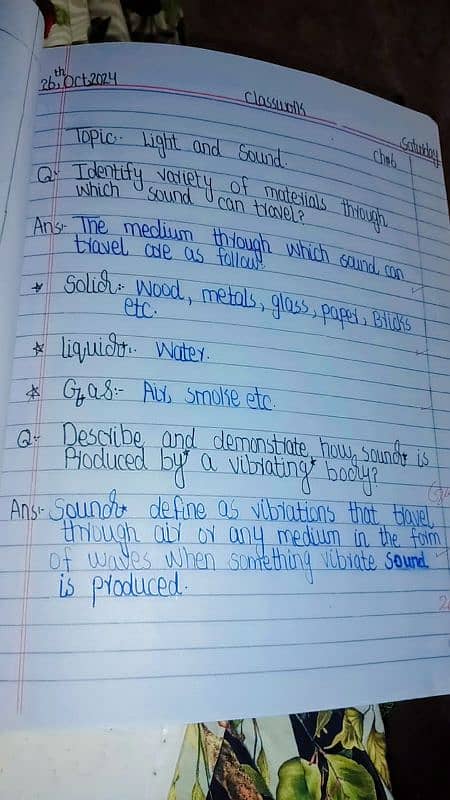 26th, Oct, 2024
Classwork
Saturday
Topic:- Light and Sound.
Ch#6
Q:- Identify variety of materials through
which sound can travel?
Ans:- The medium through which sound can
travel are as follow:
* Solid:- Wood, metals, glass, paper, Bricks
etc.
* liquid:- Water.
* Gas:- Air, smoke etc.
Q:- Describe and demonstrate, how sound is
Produced by a vibrating body?
Ans:- Sound define as vibrations that travel
through air or any medium in the form
of waves when something vibrate sound
is produced.